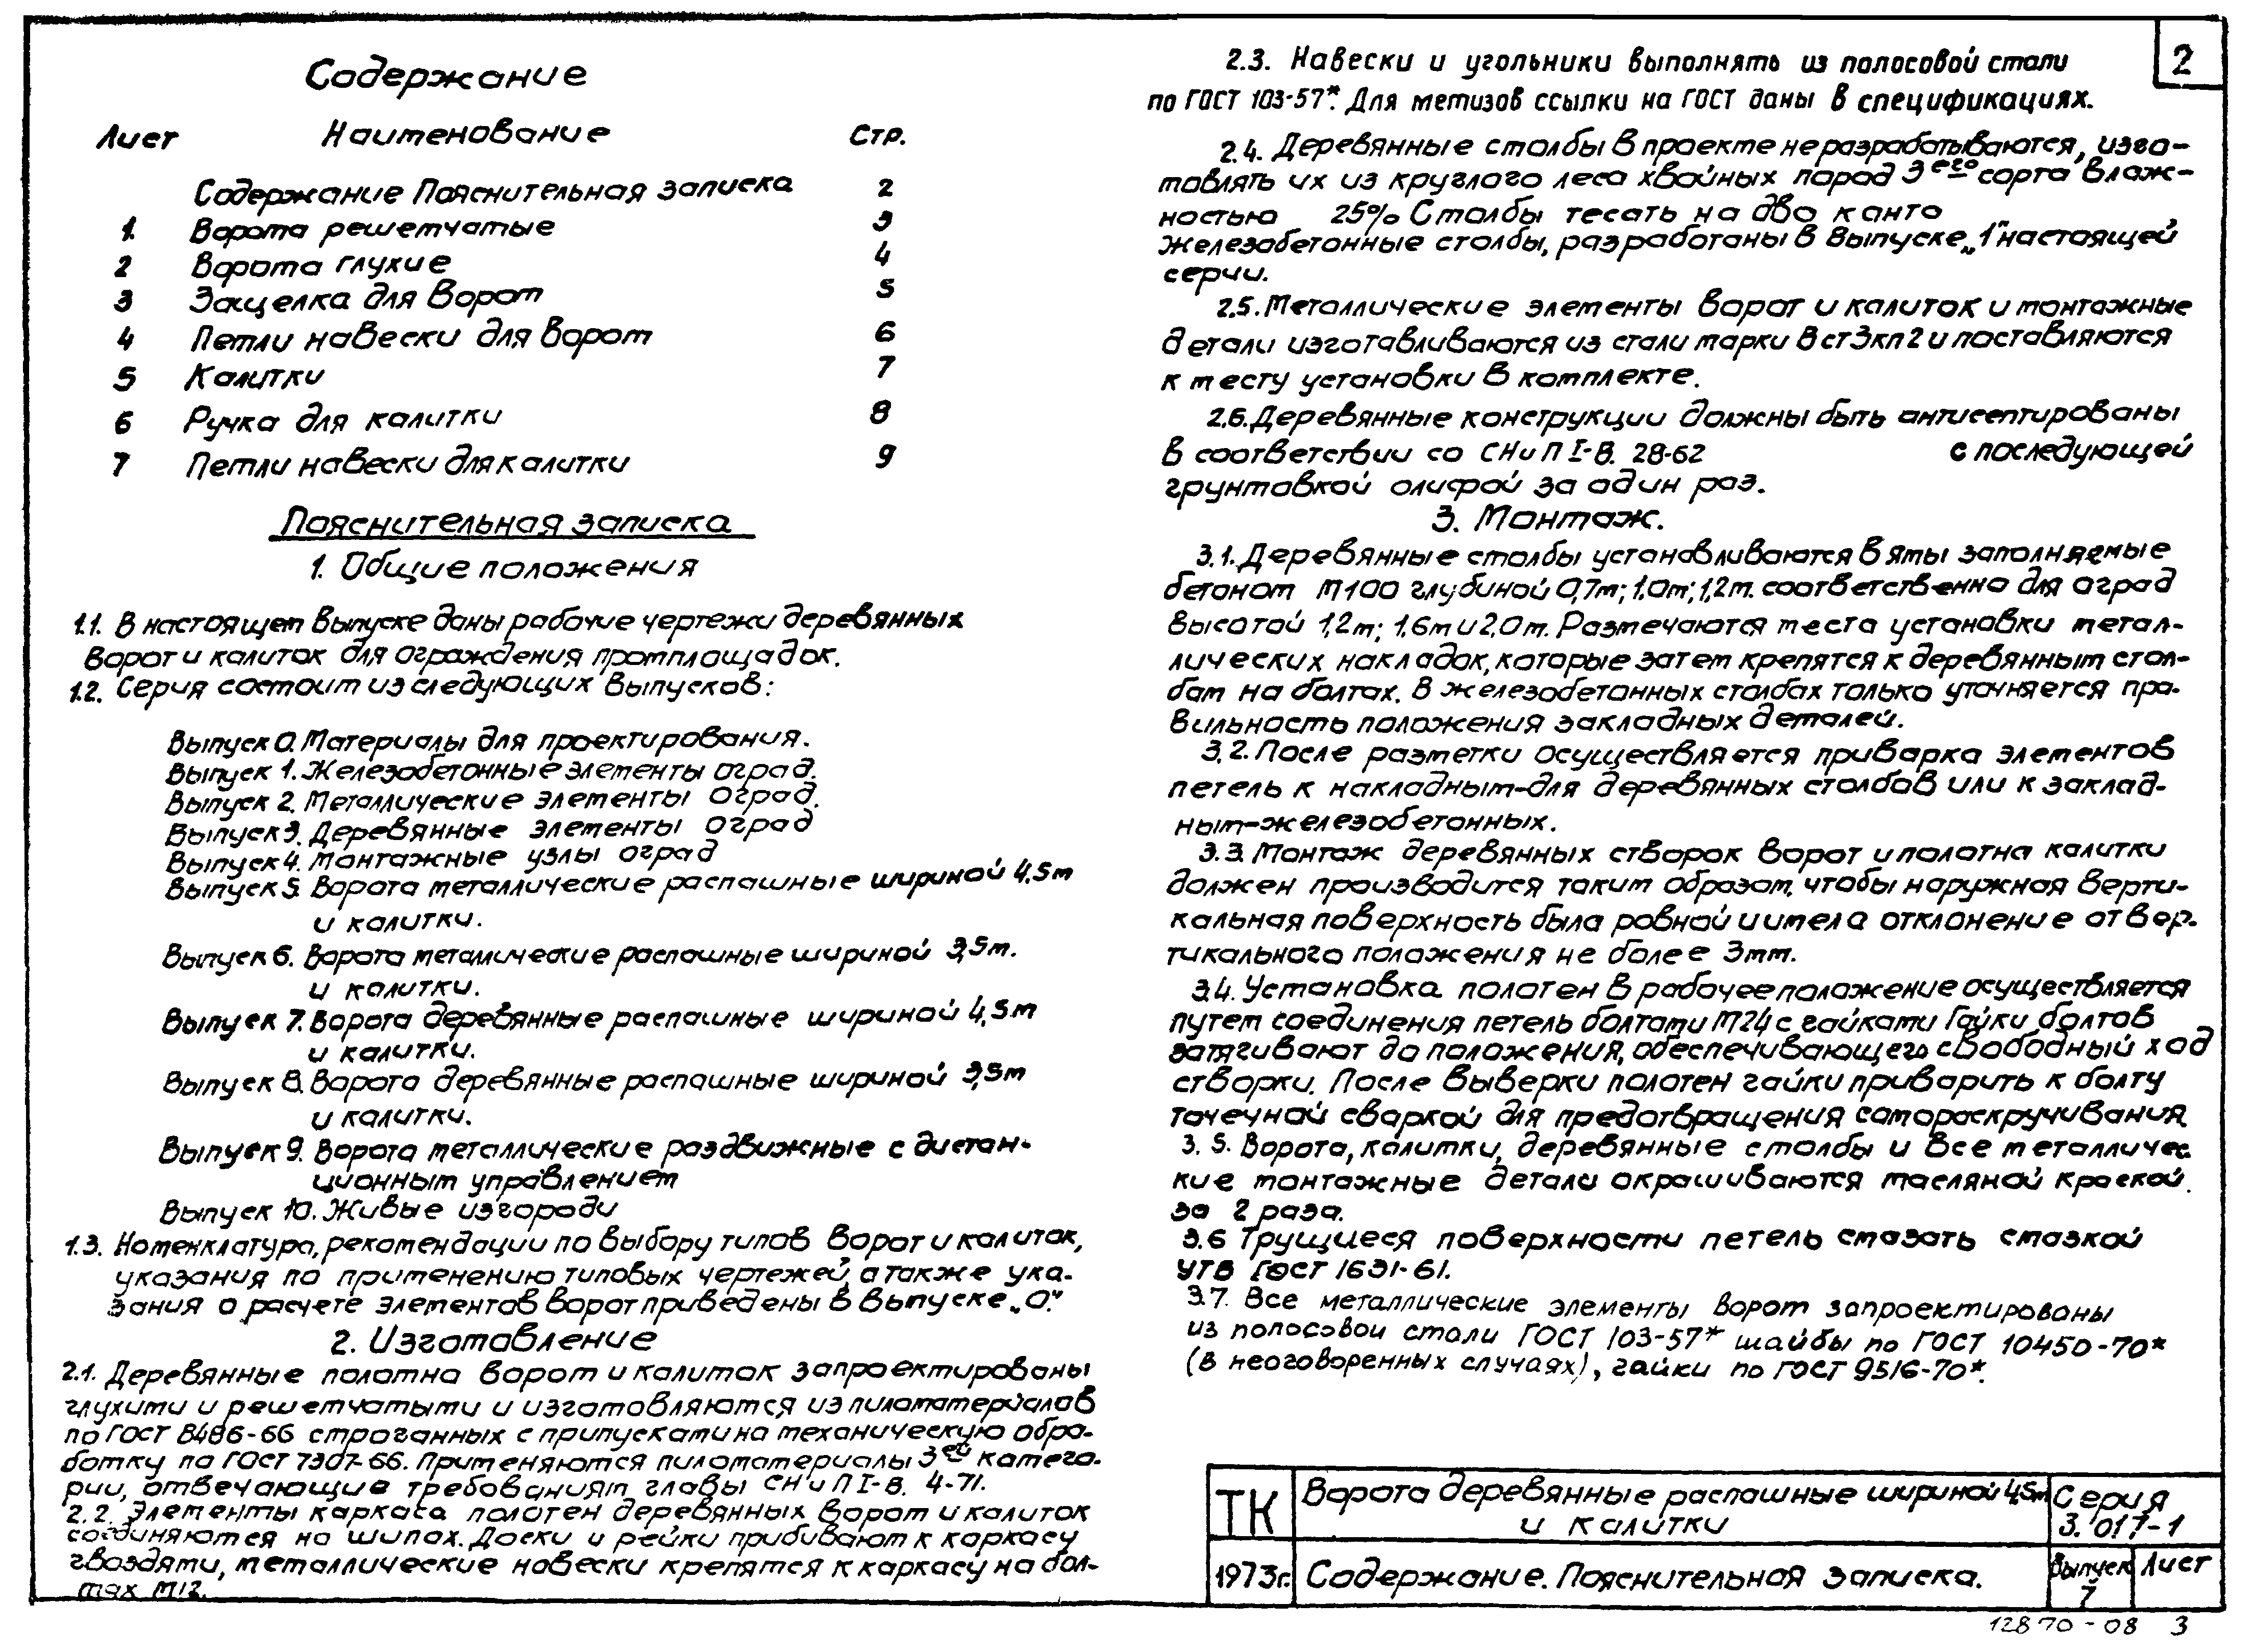 Содержание
Лист Наименование Стр.
Содержание Пояснительная записка 2
1. Ворота решетчатые 3
2 Ворота глухие 4
3 Защелка для ворот 5
4 Петли навески для ворот 6
5 Калитки 7
6 Ручка для калитки 8
7 Петли навески для калитки 9
Пояснительная записка
1. Общие положения
1.1. В настоящем выпуске даны рабочие чертежи деревянных
ворот и калиток для ограждения промплощадок.
1.2. Серия состоит из следующих выпусков:
Выпуск 0. Материалы для проектирования.
Выпуск 1. Железобетонные элементы оград.
Выпуск 2. Металлические элементы оград.
Выпуск 3. Деревянные элементы оград
Выпуск 4. Монтажные узлы оград
Выпуск 5. Ворота металлические распашные шириной 4,5м
и калитки.
Выпуск 6. Ворота металлические распашные шириной 3,5м.
и калитки.
Выпуск 7. Ворота деревянные распашные шириной 4,5м
и калитки.
Выпуск 8. Ворота деревянные распашные шириной 3,5м
и калитки.
Выпуск 9. Ворота металлические раздвижные с дистан-
ционным управлением
Выпуск 10. Живые изгороди
1.3. Номенклатура, рекомендации по выбору типов ворот и калиток,
указания по применению типовых чертежей, а также ука-
зания о расчете элементов ворот приведены в выпуске „0."
2. Изготовление
2.1. Деревянные полотна ворот и калиток запроектированы
глухими и решетчатыми и изготовляются из пиломатериалов
по ГОСТ 8486-66 строганных с припусками на механическую обра-
ботку по ГОСТ 7307-66. Применяются пиломатериалы 3ей катего-
рии, отвечающие требованиям главы СНиП I-В. 4-71.
2.2. Элементы каркаса полотен деревянных ворот и калиток
соединяются на шипах. Доски и рейки прибивают к каркасу
гвоздями, металлические навески крепятся к каркасу на бол-
тах М12.
2.3. Навески и угольники выполнять из полосовой стали
по ГОСТ 103-57*. Для метизов ссылки на ГОСТ даны в спецификациях.
2.4. Деревянные столбы в проекте не разрабатываются, изго-
товлять их из круглого леса хвойных пород 3его сорта влаж-
ностью 25% Столбы тесать на два канта
Железобетонные столбы, разработаны в выпуске „1" настоящей
серии.
2.5. Металлические элементы ворот и калиток и монтажные
детали изготавливаются из стали марки В ст3кп2 и поставляются
к месту установки в комплекте.
2.6. Деревянные конструкции должны быть антисептированы
в соответствии со СНиП I-В. 28-62 с последующей
грунтовкой олифой за один раз.
3. Монтаж.
3.1. Деревянные столбы устанавливаются в ямы заполняемые
бетоном М100 глубиной 0,7м; 1.0м; 1,2м. соответственно для оград
высотой 1,2м; 1,6м и 2,0м. Размечаются места установки метал-
лических накладок, которые затем крепятся к деревянным стол-
бам на болтах. В железобетонных столбах только уточняется пра-
вильность положения закладных деталей.
3.2. После разметки осуществляется приварка элементов
петель к накладным-для деревянных столбов или к заклад-
ным-железобетонных.
3.3. Монтаж деревянных створок ворот и полотна калитки
должен производится таким образом, чтобы наружная верти-
кальная поверхность была ровной и имела отклонение от вер-
тикального положения не более 3мм.
3.4. Установка полотен в рабочее положение осуществляется
путем соединения петель болтами М24 с гайками Гайки болтов
затягивают до положения, обеспечивающего свободный ход
створки. После выверки полотен гайки приварить к болту
точечной сваркой для предотвращения самораскручивания
3.5. Ворота, калитки, деревянные столбы и все металличес-
кие монтажные детали окрашиваются масляной краской
за 2 раза.
3.6 Трущиеся поверхности петель смазать смазкой
УТВ ГОСТ 1631-61.
3.7. Все металлические элементы ворот запроектированы
из полосовой стали ГОСТ 103-57* шайбы по ГОСТ 10450-70*
(в неоговоренных случаях), гайки по ГОСТ 9516-70*.
2
ТК Ворота деревянные распашные шириной 4,5м
и калитки
Серия
3.017-1
1973г. Содержание. Пояснительная записка.
Выпуск
7
Лист
12870-08 3